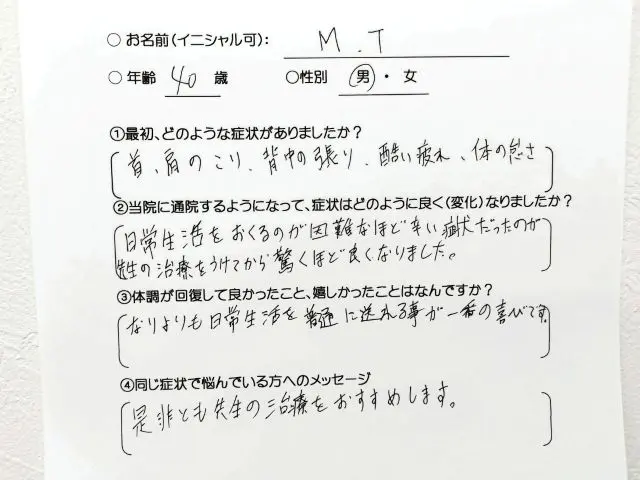 ○ お名前(イニシャル可): M.T
○ 年齢 40 歳 ○性別 男・女
①最初、どのような症状がありましたか?
首、肩のこり、背中の張り、酷い疲れ、体の怠さ
②当院に通院するようになって、症状はどのように良く(変化)なりましたか?
日常生活をおくるのが困難なほど辛い症状だったのが
先生の治療をうけてから驚くほど良くなりました。
③体調が回復して良かったこと、嬉しかったことはなんですか?
なりよりも日常生活を普通に送れる事が一番の喜びです。
④同じ症状で悩んでいる方へのメッセージ
是非とも先生の治療をおすすめします。